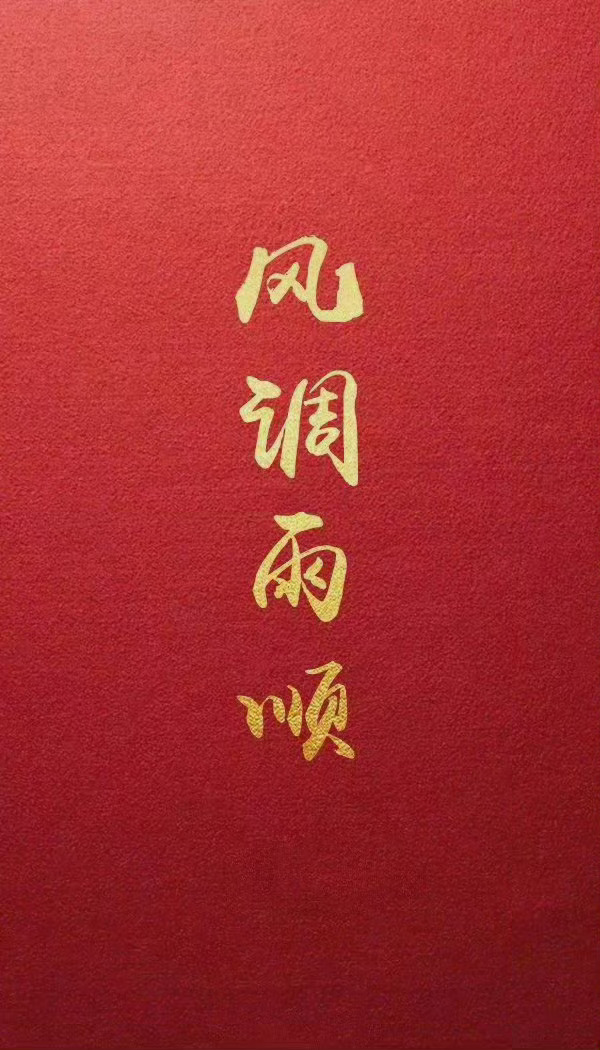 风调雨顺